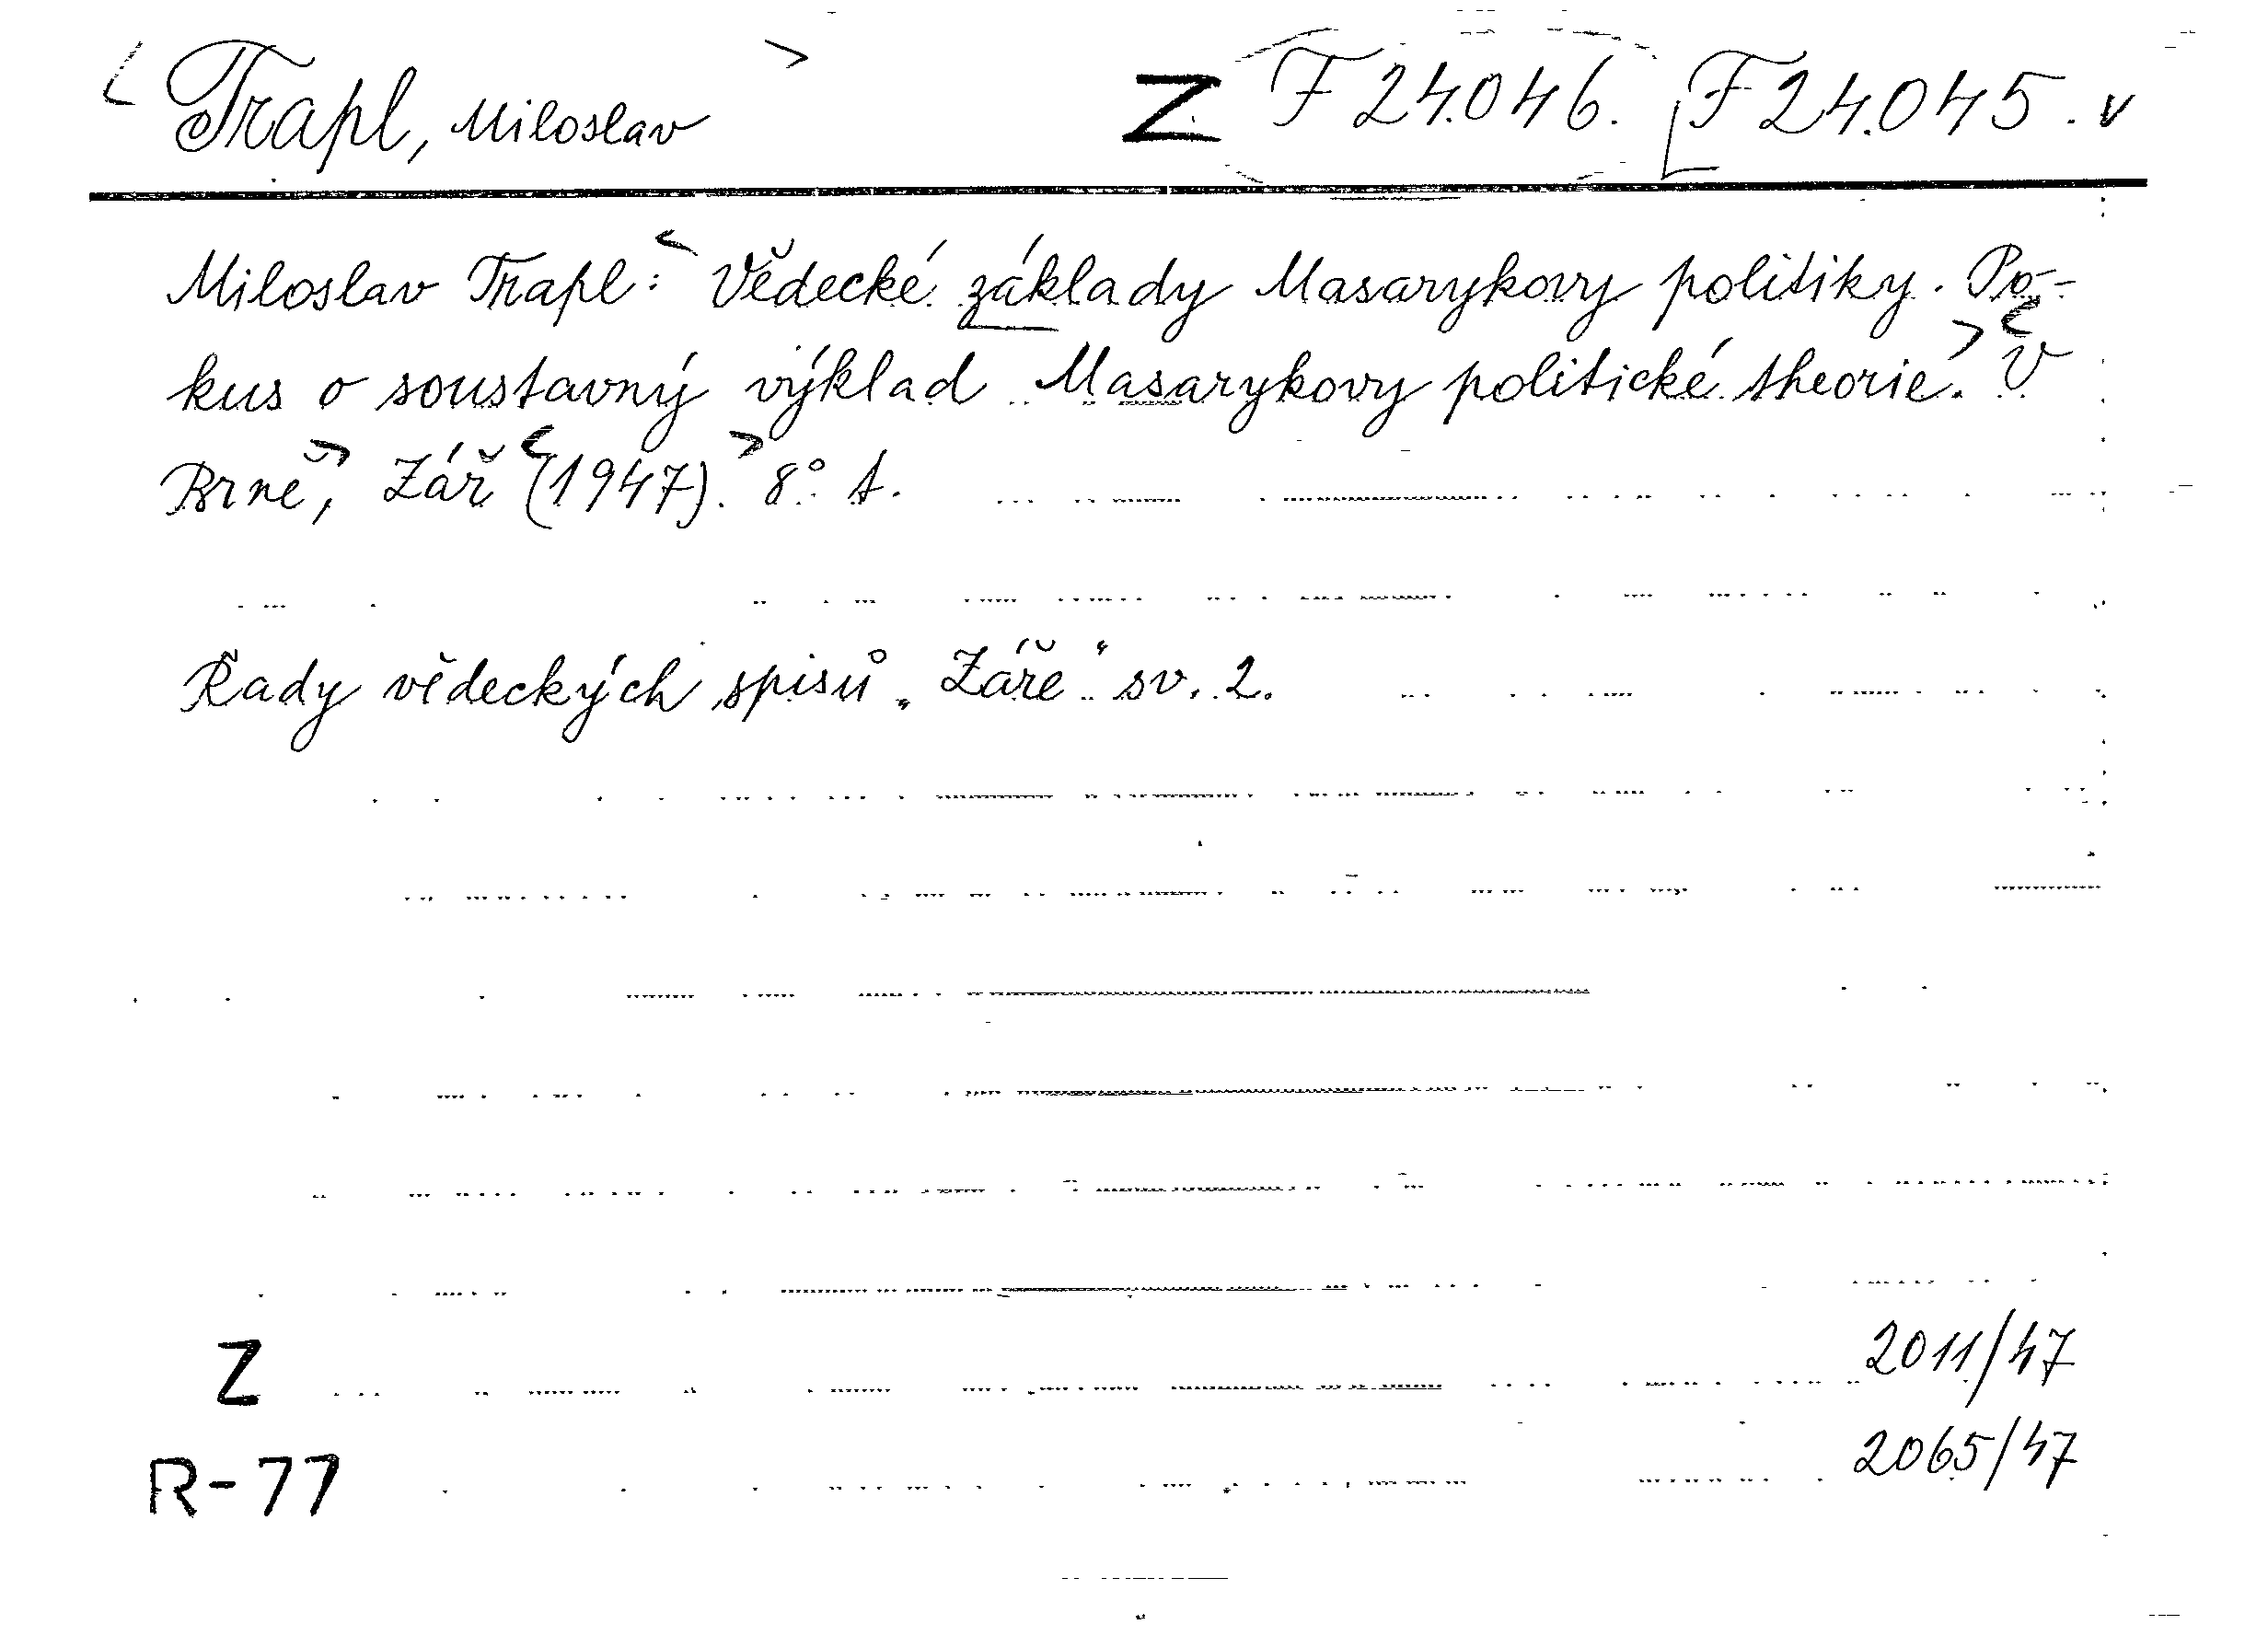 < Trapl, Miloslav > Z F 24.046. [F 24.045. v
Miloslav Trapl: < Vědecké základy Masarykovy politiky. Po-
kus o soustavný výklad Masarykovy politické theorie. > < V
Brně, > Zář < (1947). > 8° t.
Řady vědeckých spisů „Záře“ sv. 2.
Z 2011/47
R-77 2065/47